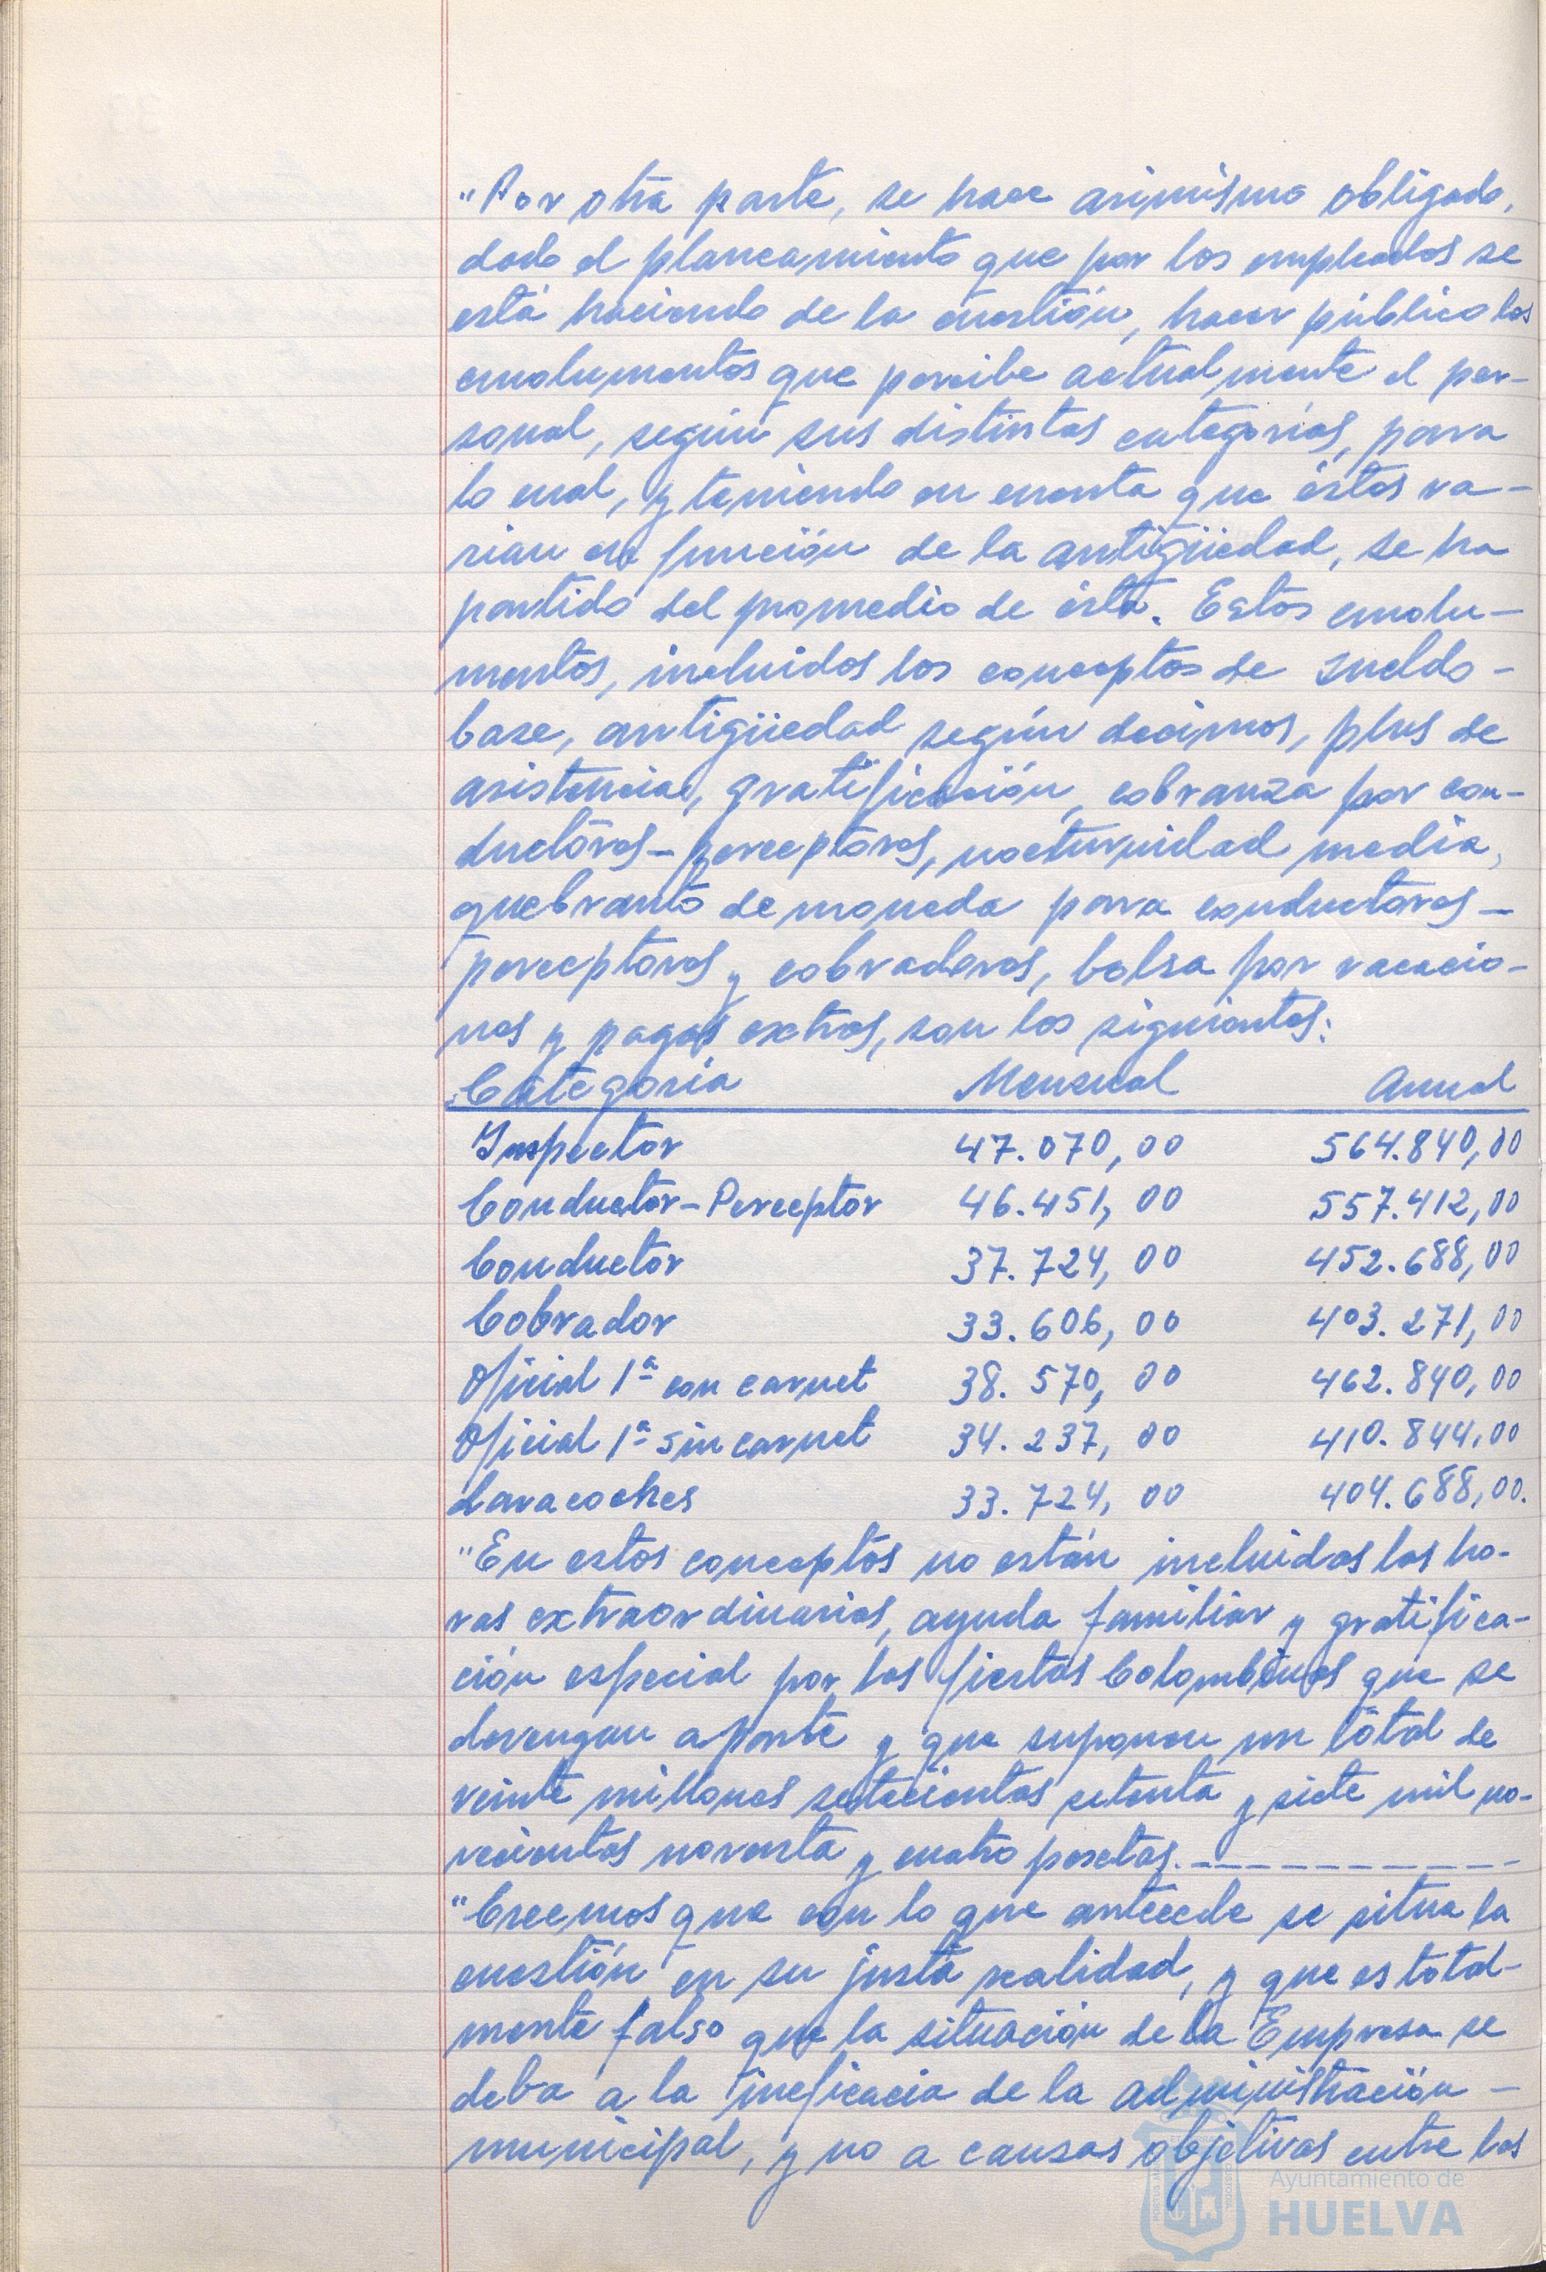 "Por otra parte, se hace asimismo obligado,
dado el planeamiento que por los empleados se
está haciendo de la cuestión, hacer público los
emolumentos que percibe actualmente el per-
sonal, según sus distintas categorías, para
lo cual, y teniendo en cuenta que éstos va-
rian en función de la antigüedad, se ha
partido del promedio de ésta. Estos emolu-
mentos, incluidos los conceptos de sueldo-
base, antigüedad según decimos, plus de
asistencia, gratificación, cobranza por con-
ductores-perceptores, nocturnidad media,
quebranto de moneda para conductores-
perceptores y cobradores, bolsa por vacacio-
nes y pagas extras, son los siguientes:
Categoría Mensual Anual
Inspector 47.070,00 564.840,00
Conductor-Perceptor 46.451,00 557.412,00
Conductor 37.724,00 452.688,00
Cobrador 33.606,00 403.271,00
Oficial 1ª con carnet 38.570,00 462.840,00
Oficial 1ª sin carnet 34.237,00 410.844,00
Lavacoches 33.724,00 404.688,00.
"En estos conceptos no están incluidas las ho-
ras extraordinarias, ayuda familiar y gratifica-
ción especial por las fiestas Colombinas que se
devengan aparte y que suponen un total de
veinte millones setecientas setenta y siete mil no-
vecientas noventa y cuatro pesetas. -----------
"Creemos que con lo que antecede se situa la
cuestión en su justa realidad, y que es total-
mente falso que la situación de la Empresa se
deba a la ineficacia de la administración -
municipal, y no a causas objetivas entre las
Ayuntamiento de
HUELVA